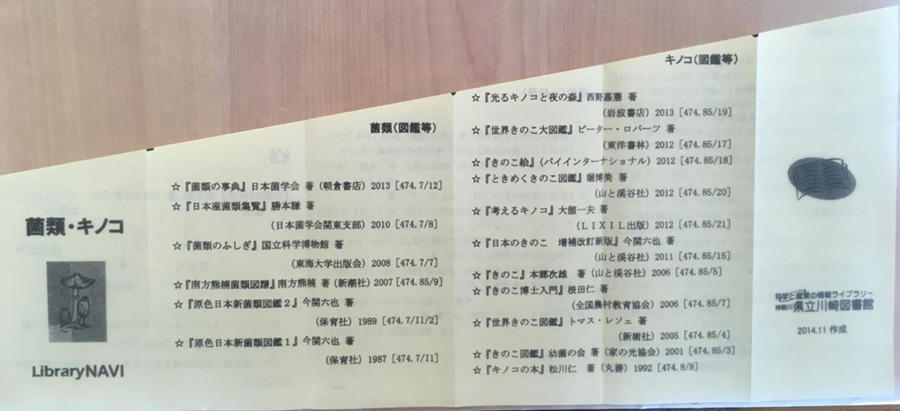 菌類・キノコ
LibraryNAVI
菌類(図鑑等)
☆『菌類の事典』日本菌学会 著(朝倉書店)2013 [474.7/12]
☆『日本産菌類集覧』勝本謙 著
(日本菌学会関東支部) 2010 [474.7/8]
☆『菌類のふしぎ』国立科学博物館 著
(東海大学出版会) 2008 [474.7/7]
☆『南方熊楠菌類図譜』南方熊楠 著(新潮社) 2007 [474.85/9]
☆『原色日本新菌類図鑑2』今関六也 著
(保育社) 1989 [474.7/I1/2]
☆『原色日本新菌類図鑑1』今関六也 著
(保育社) 1987 [474.7/I1]
キノコ(図鑑等)
☆『光るキノコと夜の森』西野嘉憲 著
(岩波書店) 2013 [474.85/19]
☆『世界きのこ大図鑑』ピーター・ロバーツ 著
(東洋書林) 2012 [474.85/17]
☆『きのこ絵』(パイインターナショナル) 2012 [474.85/18]
☆『ときめくきのこ図鑑』堀博美 著
(山と溪谷社) 2012 [474.85/20]
☆『考えるキノコ』大舘一夫 著
(LIXIL出版) 2012 [474.85/21]
☆『日本のきのこ 増補改訂新版』今関六也 著
(山と溪谷社) 2011 [474.85/15]
☆『きのこ』本郷次雄 著(山と溪谷社) 2006 [474.85/5]
☆『きのこ博士入門』根田仁 著
(全国農村教育協会) 2006 [474.85/7]
☆『世界きのこ図鑑』トマス・レソェ 著
(新樹社) 2005 [474.85/4]
☆『きのこ図鑑』幼菌の会 著(家の光協会) 2001 [474.85/3]
☆『キノコの本』松川仁 著(丸勝) 1992 [474.8/8]
科学と産業の情報ライブラリー
神奈川県立川崎図書館
2014.11 作成